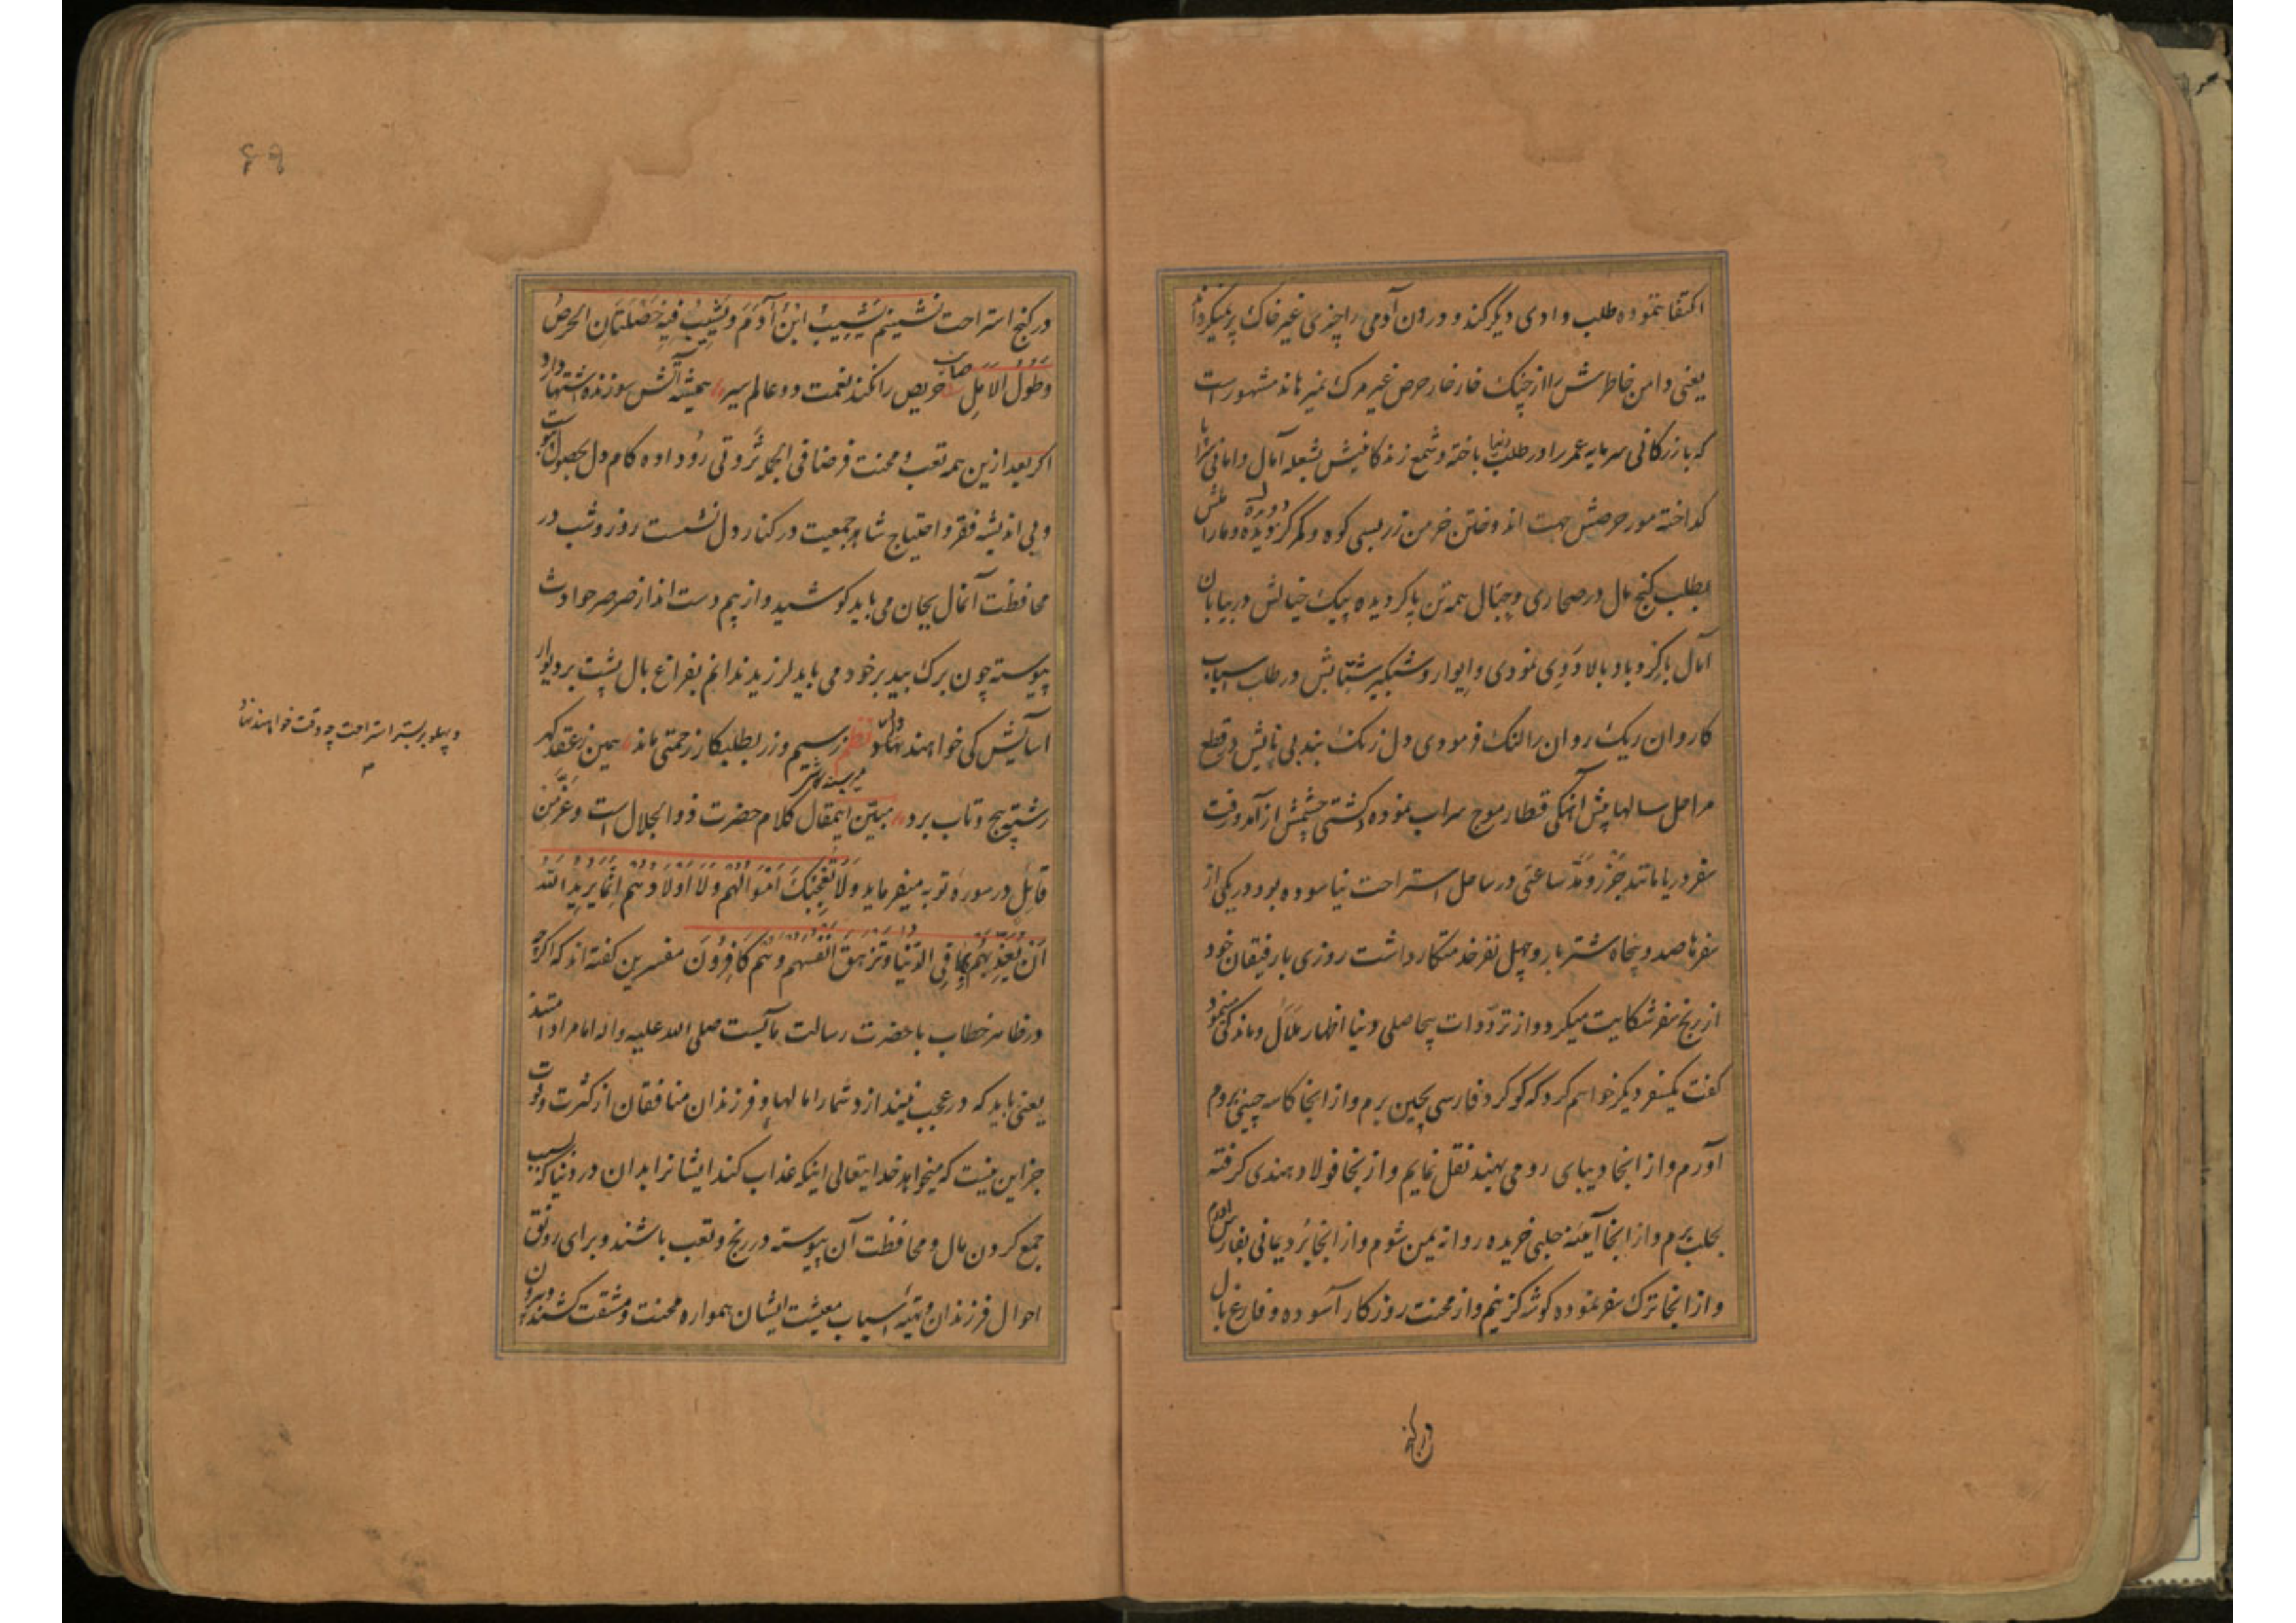 اکتفا ننموده طلب وادی دیگر کند و درون آدمی را چیزی غیر خاک پر نمیکرداند
یعنی دامن خاطرش را از چنک خار خار حرص غیر مرک نمیرهاند مشهور است
که بازرکانی سرمایه عمر را در طلب دنیا باخته و شمع زندکانیش بشعله آمال و امانی
کداخته مور حرصش جهت اندوختن خرمن زر بسی کوه و کمر کردیده و مار
بطلب کنج مال در صحاری و جبال همه تن پا کردیده پیک خیالش در بیابان
آمال با کردباد بالادوی نمودی و ایوار و شبکیر شتابش در طلب اسباب
کاروان ریک روان را لنک فرمودی دل زنک بند بی تابش در قطع
مراحل سالها پیش آهنکی قطار موج سراب نموده کشتی چشمش از آمد و رفت
سفر دریا مانند جزر و مد ساعتی در ساحل استراحت نیاسوده بود در یکی از
سفرها صد و پنجاه شتر بار و چهل نفر خدمتکار داشت روزی با رفیقان خود
از رنج سفر شکایت میکرد و از ترددات بیحاصلی دنیا اظهار ملال و ماندکی مینمود
کفت یکسفر دیکر خواهم کرد که کوکرد فارسی بچین برم و از انجا کاسه چینی بروم
آورم و از انجا دیبای رومی بهند نقل نمایم و از نجا فولاد هندی کرفته
بحلب برم و از انجا آیینه حلبی خریده روانه یمن شوم و از انجا برد یمانی بفارس آورم
و از انجا ترک سفر نموده کوشه کزینم و از محنت روزکار آسوده و فارغ بال
در کنج
۶۹
در کنج استراحت نشینم یَشِیبُ ابْنُ آدَمَ وَیَشِیبُ فِیهِ خَصْلَتَانِ الحِرْصُ
وَطُولُ الاَمَلِ صاحب حریص را نکند نعمت دو عالم سیر همیشه آتش سوزنده اشتها دارد
اکر بعد از این همه تعب و محنت فرضا فی الجمله ثروتی رو داده کام دل بحصول پیوست
و بی اندیشه فقر و احتیاج شاهد جمعیت در کنار دل نشست روز و شب در
محافظت آنمال بجان می باید کوشید و از بیم دست انداز صرصر حوادث
پیوسته چون برک بید بر خود می باید لرزید ندانم بفراغ بال پشت بر دیوار
آسایش کی خواهند نهاد نظم ز سیم و زر بطلبکار زحمتی ماند همین ز عقد کهر
رشته پیچ و تاب برد مبین اینمقال کلام حضرت ذو الجلال است و عز من
قائل در سوره توبه میفرماید وَلَا تُعْجِبْکَ اَمْوَالُهُمْ وَلَا اَوْلَادُهُمْ اِنَّمَا یُرِیدُ اللهُ
اَنْ یُعَذِّبَهُمْ بِهَا فِی الدُّنْیَا وَتَزْهَقَ اَنْفُسُهُمْ وَهُمْ کَافِرُونَ مفسرین کفته اند که اکرچه
در ظاهر خطاب با حضرت رسالت مآبست صلی الله علیه و آله اما مراد امتند
یعنی باید که در عجب نیندازد شما را مالها و فرزندان منافقان از کثرت و قوت
جز این نیست که میخواهد خدایتعالی اینکه عذاب کند ایشانرا بدان در دنیا که بسبب
جمع کردن مال و محافظت آن پیوسته در رنج و تعب باشند و برای رونق
احوال فرزندان و تهیه اسباب معیشت ایشان همواره محنت و مشقت کشند و بیرون
و پهلو بر بستر استراحت چه وقت خواهند نهاد